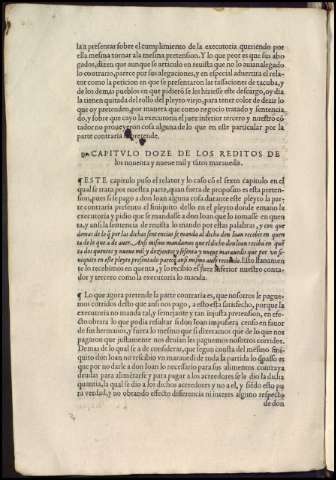 lan presentar sobre el cumplimiento de la executoria queriendo por
ella mesma tornar a la mesma pretension. Y lo que peor es que sus abo
gados, dizen que aunque se articulo en reuista que no auian alegado
lo contrario, parece por sus alegaciones, y en especial aduertta el rela
tor como la peticion en que se presentaron las tassaciones de tacuba, y
de los demas pueblos en que pidieron se les hiziesse este descargo, oy dia
la tienen quitada del rollo del pleyto viejo, para tener color de dezir lo
que oy pretenden, por manera que como negocio tratado y sentencia
do, y sobre que cayo la executoria el juez inferior tercero y nuestro cō
tador no proueyeron cosa alguna de lo que en este particular por la
parte contraria se pretende.
CAPITVLO DOZE DE LOS REDITOS DE
los nouenta y nueue mil y tātos marauedis.
¶ ESTE capitulo puso el relator y lo caso cō el sexto capitulo en el
qual se trata por nuestra parte, quan fuera de proposito es esta preten
sion, pues se le pago a don Ioan alguna cosa durante este pleyto la par
te contraria pretendio el finiquito dello en el pleyto donde emano la
executoria y pidio que se mandasse a don Ioan que lo tomasse en quen
ta, y ansi la sentencia de reuista lo mando por estas palabras, y con que
demas de lo q̄ por las dichas sentencias se manda al dicho don Ioan reciba en quen
ta de lo que a de auer. Ansi mismo mandamos que el dicho don Ioan reciba en quē
ta dos quentos y nueue mil y dozientos y sesenta y nueue marauedis que por vn fi-
niquito en este pleyto presentado parece auer ansi mismo auer recebido. Esto llanamen
te lo recebimos en quenta, y lo recibio el juez inferior nuestro conta-
dor y tercero como la executoria lo manda.
¶ Lo que agora pretende la parte contraria es, que nosotros le pague-
mos corridos desto que ansi nos pago, a esto esta satisfecho, porque la
executoria no manda tal, y semejante y tan injusta pretension, en efe-
cto obrara lo que podia resultar si don Ioan impusiera censo en fauor
de sus hermanos, y fuera lo mesmo que si dixeramos que de lo que nos
pagaron que justamente nos deuian les paguemos nosotros corridos.
Demas de lo qual se a de considerar, que segun consta del mesmo fini-
quito don Ioan no rescibio vn marauedi de toda la partida lo q̄ passo es
que por no darle a don Ioan lo necessario para sus alimentos contraya
deudas para alimētarse y para pagar a los acreedores se le dio la dicha
quantia, la qual se dio a los dichos acreedores y no a el, y siēdo esto pu
ra verdad, y no obrando efecto differencia ni interes alguno respecto
de don